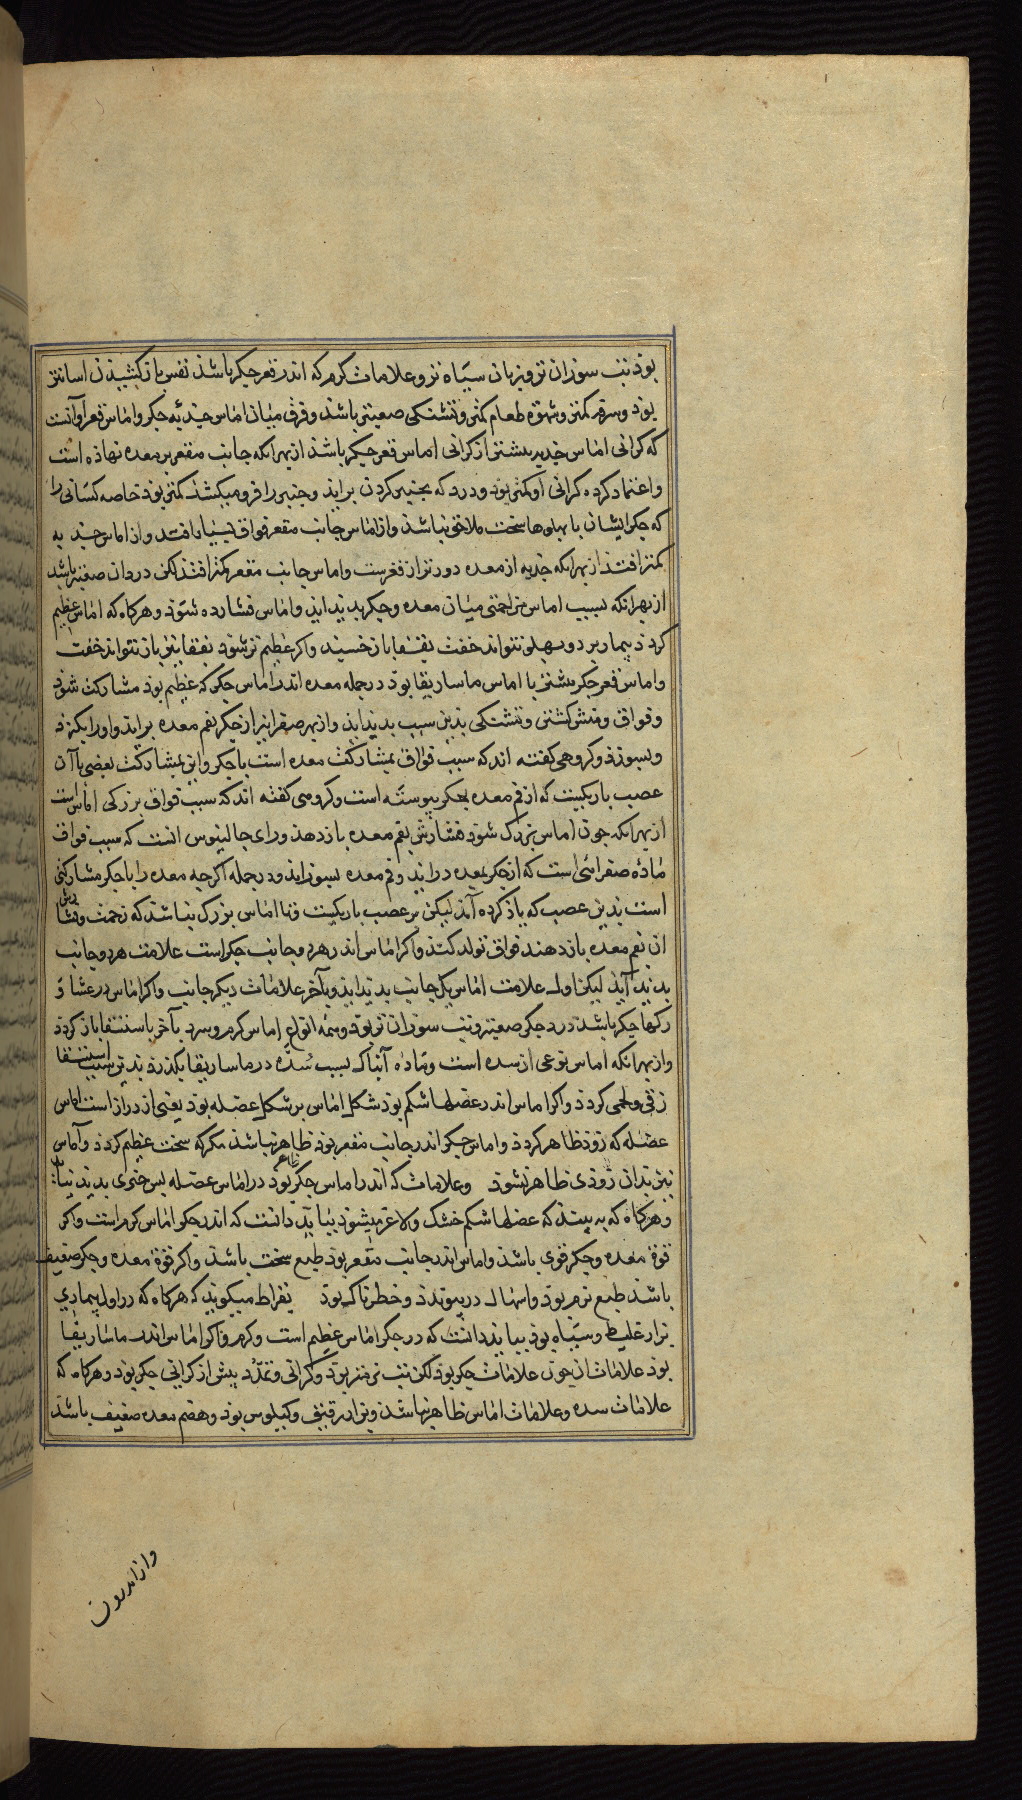 بوذ تب سوزان تر و زبان سیاه تر و علامات گرم که اندر قعر جیکر باشذ نفس باز کشیذن اسانتر
بوذ و سرفه کمتر و شهوة طعام کمتر و تشنکی صعبتر باشذ و فرق میان اماس حدبه جکر و اماس قعر او آنست
که کرانی اماس حدبه بیشتر از کرانی اماس قعر جیکر باشذ از بهر انکه جانب مقعر بر معده نهاذه است
و اعتماد کرده کرانی او کمتر بوذ و درد که بجنبر کردن براید و جنبر را فرو میکشذ کمتر بوذ خاصه کسانی را
که جکر ایشان با پهلوها سخت ملاقی نباشذ و از اماس جانب مقعر فواق بسیار افتد و از اماس حدبه
کمتر افتذ از بهر انکه حدبه از معده دورتر از قعرست و اماس جانب مقعر کمتر افتذ لکن در دان صعبتر باشد
از بهر انکه بسبب اماس مزاحمتی میان معده و جکر بدید اید و اماس فشارده شود و هرکاه که اماس عظیم
کردذ بیمار بر دو پهلو نتواند خفت بقفا باز خسبد و اکر عظیم تر شود بقفا نیز باز نتواند خفت
و اماس قعر جکر بیشتر با اماس ماساریقا بوذ در جمله معده اندر اماس جکر که عظیم بوذ مشارکت شوذ
و فواق و منش کشتن و تشنکی بدین سبب بدید اید و از بهر صفرا نیز از جکر بفم معده براید و اورا بکزد
و بسوزذ و کروهی کفته اند که سبب فواق بمشارکت معده است با جکر و این بمشارکت بعضی با آن
عصب باریکست که از فم معده بجکر بیوسته است و کروهی کفته اند که سبب فواق بزرکی اماس است
از بهر انکه چون اماس بزرک شوذ فشارش بفم معده باز دهذ و رای جالینوس انست که سبب فواق
مادۀ صفرائی است که از جکر بمعده دراید و فم معده بسوزاند و در جمله اکرجه معده را با جکر مشارکتی
است بدین عصب که یاذ کرده آمذ لیکن بس عصب باریکست و تا اماس بزرک نباشذ که زحمت و فشارش
ان بفم معده باز دهند فواق تولد کنذ و اکر اماس اندر هر دو جانب جکر است علامت هر دو جانب
بدید آیذ لیکن اول علامت اماس یک جانب بدید اید و بآخر علامات دیکر جانب و اکر اماس در غشا و
رکها جکر باشذ درد جکر صعبتر و تب سوزان تر بوذ و همه انواع اماس کرم و سرد بآخر باستسقا باز کردد
و از بهر انکه اماس نوعی از سده است و ماده آنبا که بسبب سُدّه در ماساریقا بکذرذ بدین سبب استسقا
زقی و لحمی کردذ و اکر اماس اندر عضلها شکم بوذ شکل اماس بر شکل عضله بوذ یعنی از دراز است اماس
عضله که زوذ ظاهر کردذ و اماس جیکر اندر جانب مقعر بوذ ظاهر نباشذ مکر که سخت عظیم کردذ و آماس
نیز بدان زوذی ظاهر نشوذ و علامات که اندر اماس جکر ظاهر بوذ در اماس عضله بس جیزی بدید نیاید
و هرکاه که به بیند که عضلها شکم خشک و لاغر میشوذ بباید دانست که اندر جکر اماس کرم است و اکر
قوة معده و جیکر قوی باشذ و اماس اندر جانب مقعر بوذ طبع سخت باشذ و اکر قوة معده و جکر ضعیف
باشذ طبع نرم بوذ و اسهال در پیوندد و خطرناک بوذ بقراط میکوید که هرکاه که در اول بیماری
براز غلیظ و سیاه بوذ بباید دانست که در جکر اماس عظیم است و کرم و اکر اماس اندر ماساریقا
بوذ علامات ان چون علامات جکر بوذ لکن تب نرمتر بوذ و کرانی و تمدّد بیش از کرانی جکر بوذ و هرکاه که
علامات سده و علامات اماس ظاهر نباشذ و براز رقیق و کیلوس بوذ و هضم معده ضعیف باشذ
و از اندرون